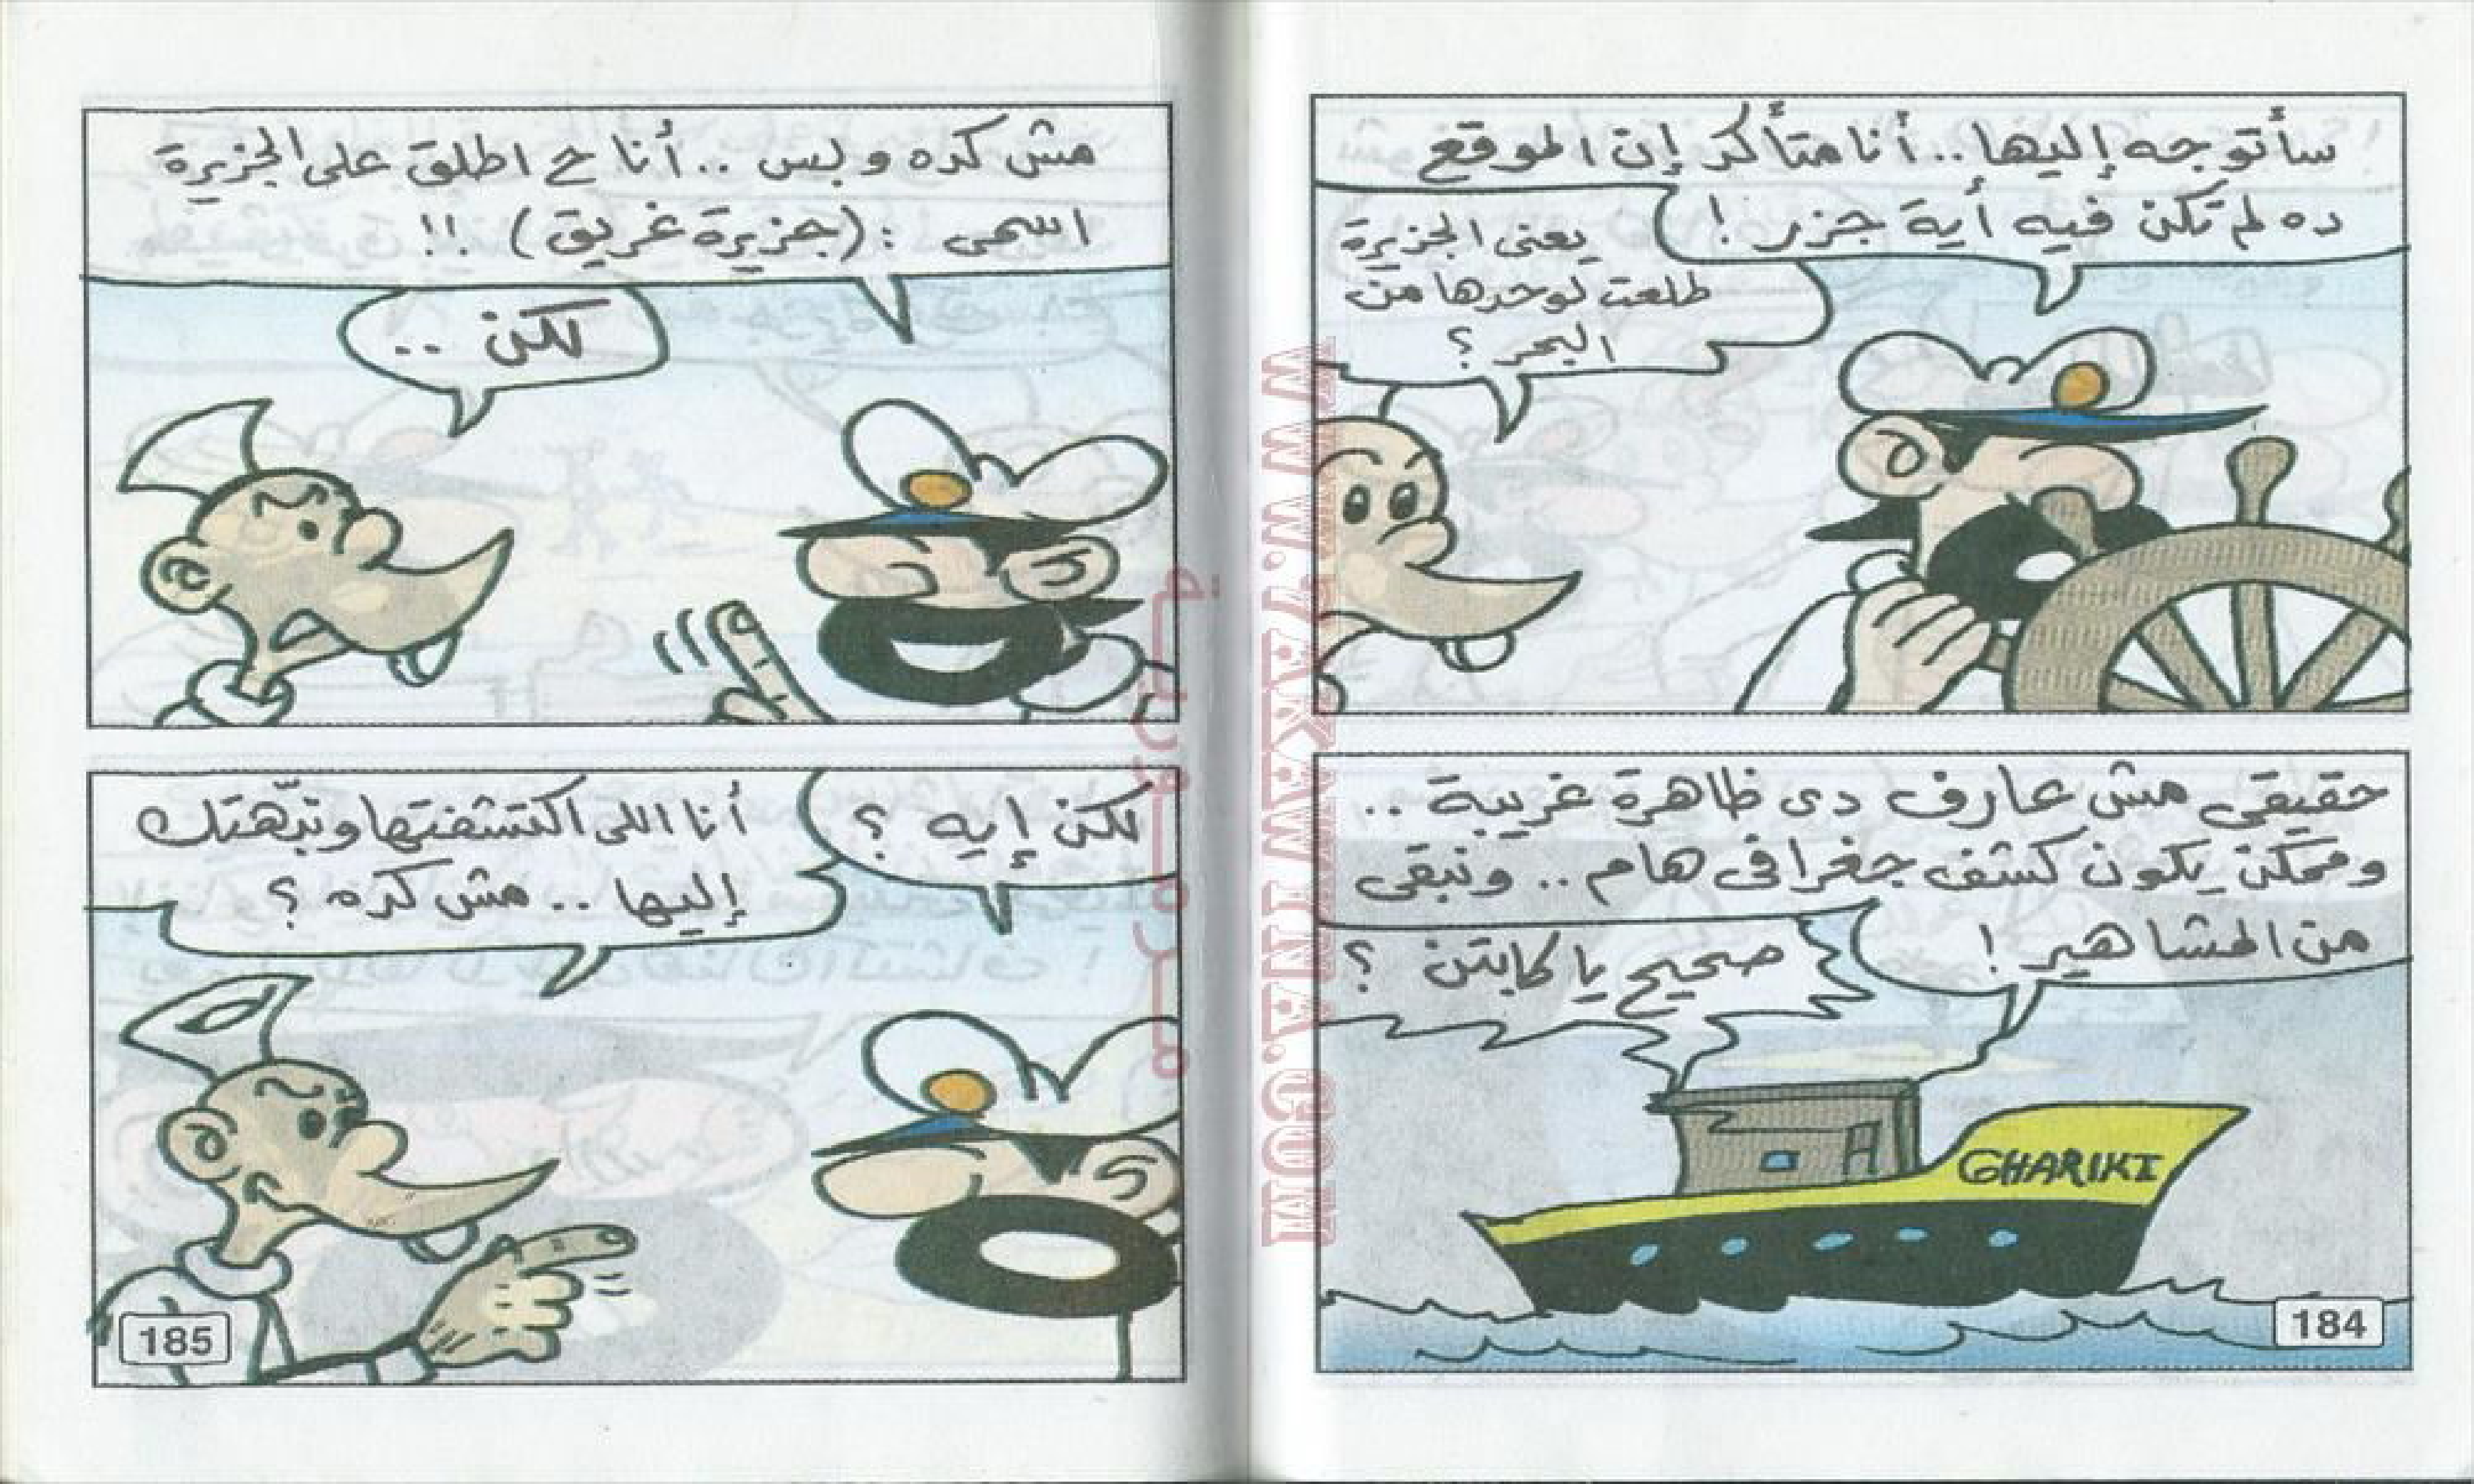 سأتوجه إليها.. أنا متأكد إن الموقع
ده لم تكن فيه أية جزر !
يعنى الجزيرة
طلعت لوحدها من
البحر ؟
حقيقى مش عارف دى ظاهرة غريبة ..
وممكن يكون كشف جغرافى هام .. ونبقى
من المشاهير !
صحيح يا كابتن ؟
GHARIKI
184
مش كده وبس .. أنا ح اطلق على الجزيرة
اسمى : (جزيرة غريق) !!
لكن ..
لكن إيه ؟
أنا اللى اكتشفتها ونبّهتك
إليها .. مش كده ؟
185